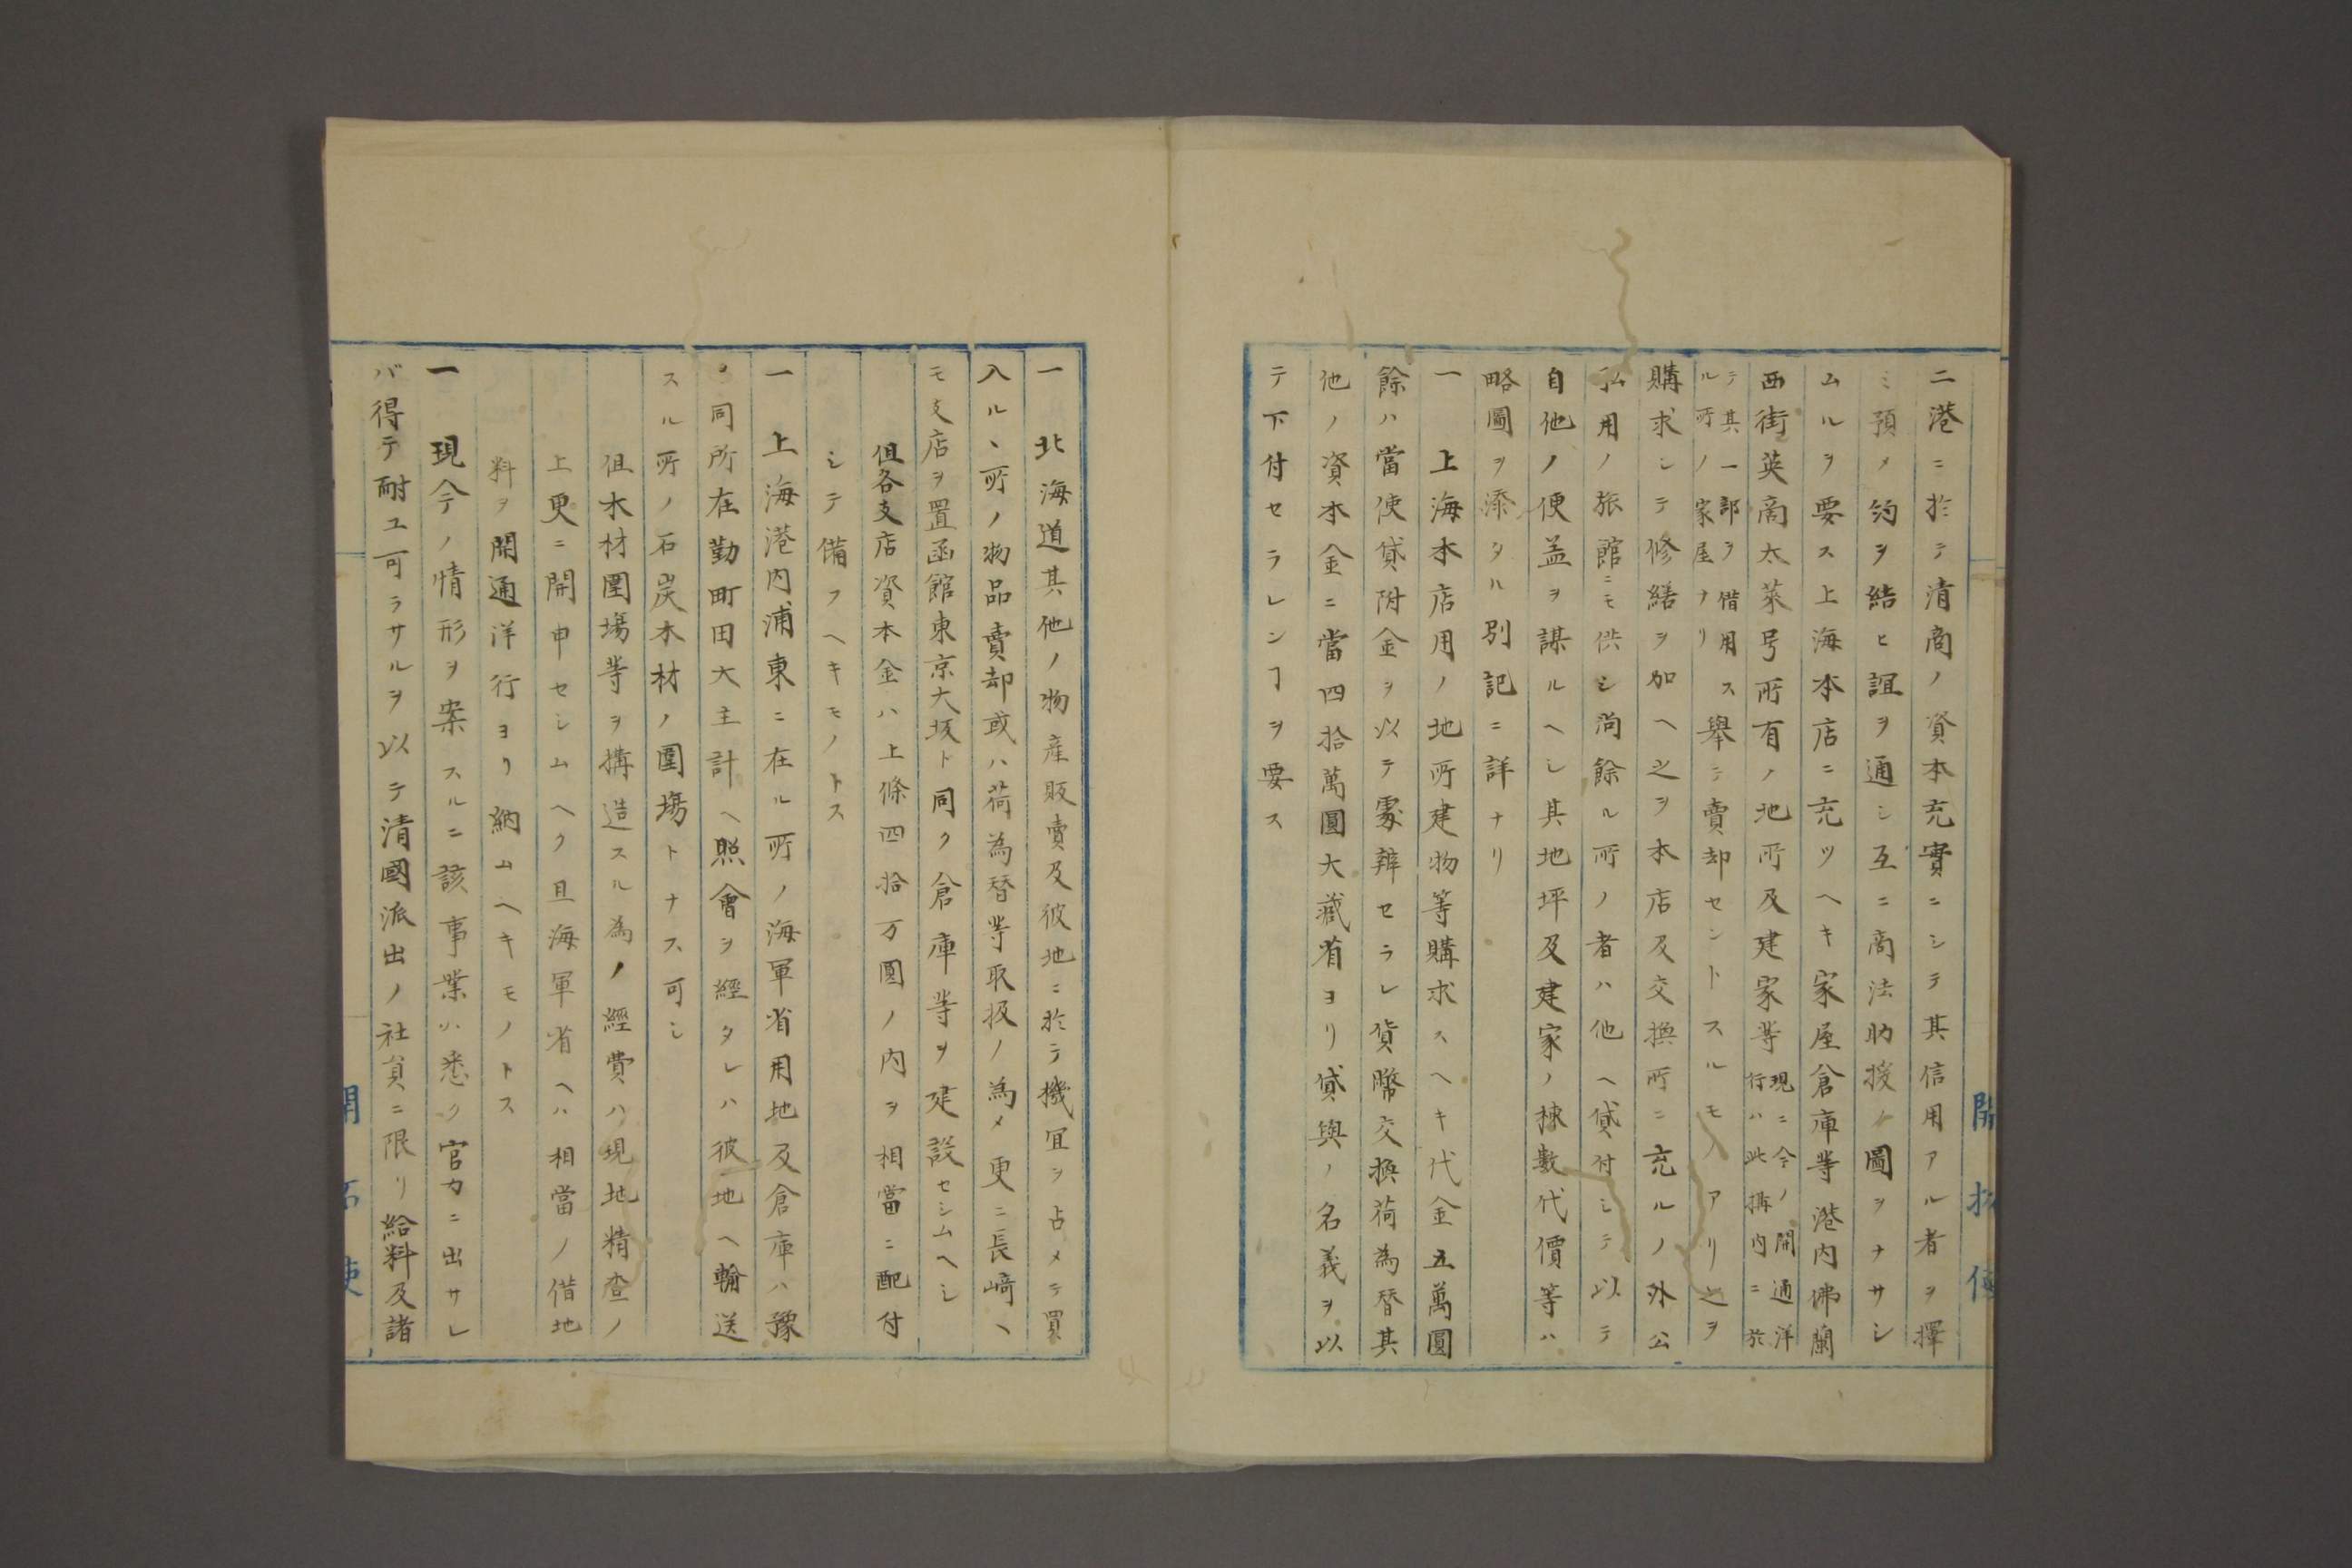 二港ニ於テ清商ノ資本充實ニシテ其信用アル者ヲ擇
ミ預メ約ヲ結ヒ誼ヲ通シ互ニ商法助援ノ圖ヲナサシ
ムルヲ要ス上海本店ニ充ツヘキ家屋倉庫等港内佛蘭
西街英商太萊号所有ノ地所及建家等現ニ今ノ開通洋行ハ此搆内ニ於
テ其一部ヲ借用スル所ノ家屋ナリ舉テ賣却セントスルモノアリ之ヲ
購求シテ修繕ヲ加ヘ之ヲ本店及交換所ニ充ルノ外公
私用ノ旅館ニモ供シ尚餘ル所ノ者ハ他ヘ貸付シテ以テ
自他ノ便益ヲ謀ルヘシ其地坪及建家ノ棟數代價等ハ
略圖ヲ添タル別記ニ詳ナリ
一 上海本店用ノ地所建物等購求スヘキ代金五萬圓
餘ハ當使貸附金ヲ以テ處辨セラレ貨幣交換荷為替其
他ノ資本金ニ當四拾萬圓大藏省ヨリ貸與ノ名義ヲ以
テ下付セラレンヿヲ要ス
一 北海道其他ノ物産販賣及彼地ニ於テ機冝ヲ占メテ買
入ルヽ所ノ物品賣却或ハ荷為替等取扱ノ為メ更ニ長崎ヽ
モ支店ヲ置函館東京大坂ト同ク倉庫等ヲ建設セシムヘシ
但各支店資本金ハ上條四拾万圓ノ内ヲ相當ニ配付
シテ備フヘキモノトス
一 上海港内浦東ニ在ル所ノ海軍省用地及倉庫ハ豫
メ同所在勤町田大主計ヘ照會ヲ經タレハ彼地ヘ輸送
スル所ノ石炭木材ノ圍場トナス可シ
但木材圍場等ヲ搆造スル為ノ經費ハ現地精査ノ
上更ニ開申セシムヘク且海軍省ヘハ相當ノ借地
料ヲ開通洋行ヨリ納ムヘキモノトス
一 現今ノ情形ヲ案スルニ該事業ハ悉ク官力ニ出サレ
バ得テ耐ユ可ラサルヲ以テ清國派出ノ社員ニ限リ給料及諸
開拓使
開拓使